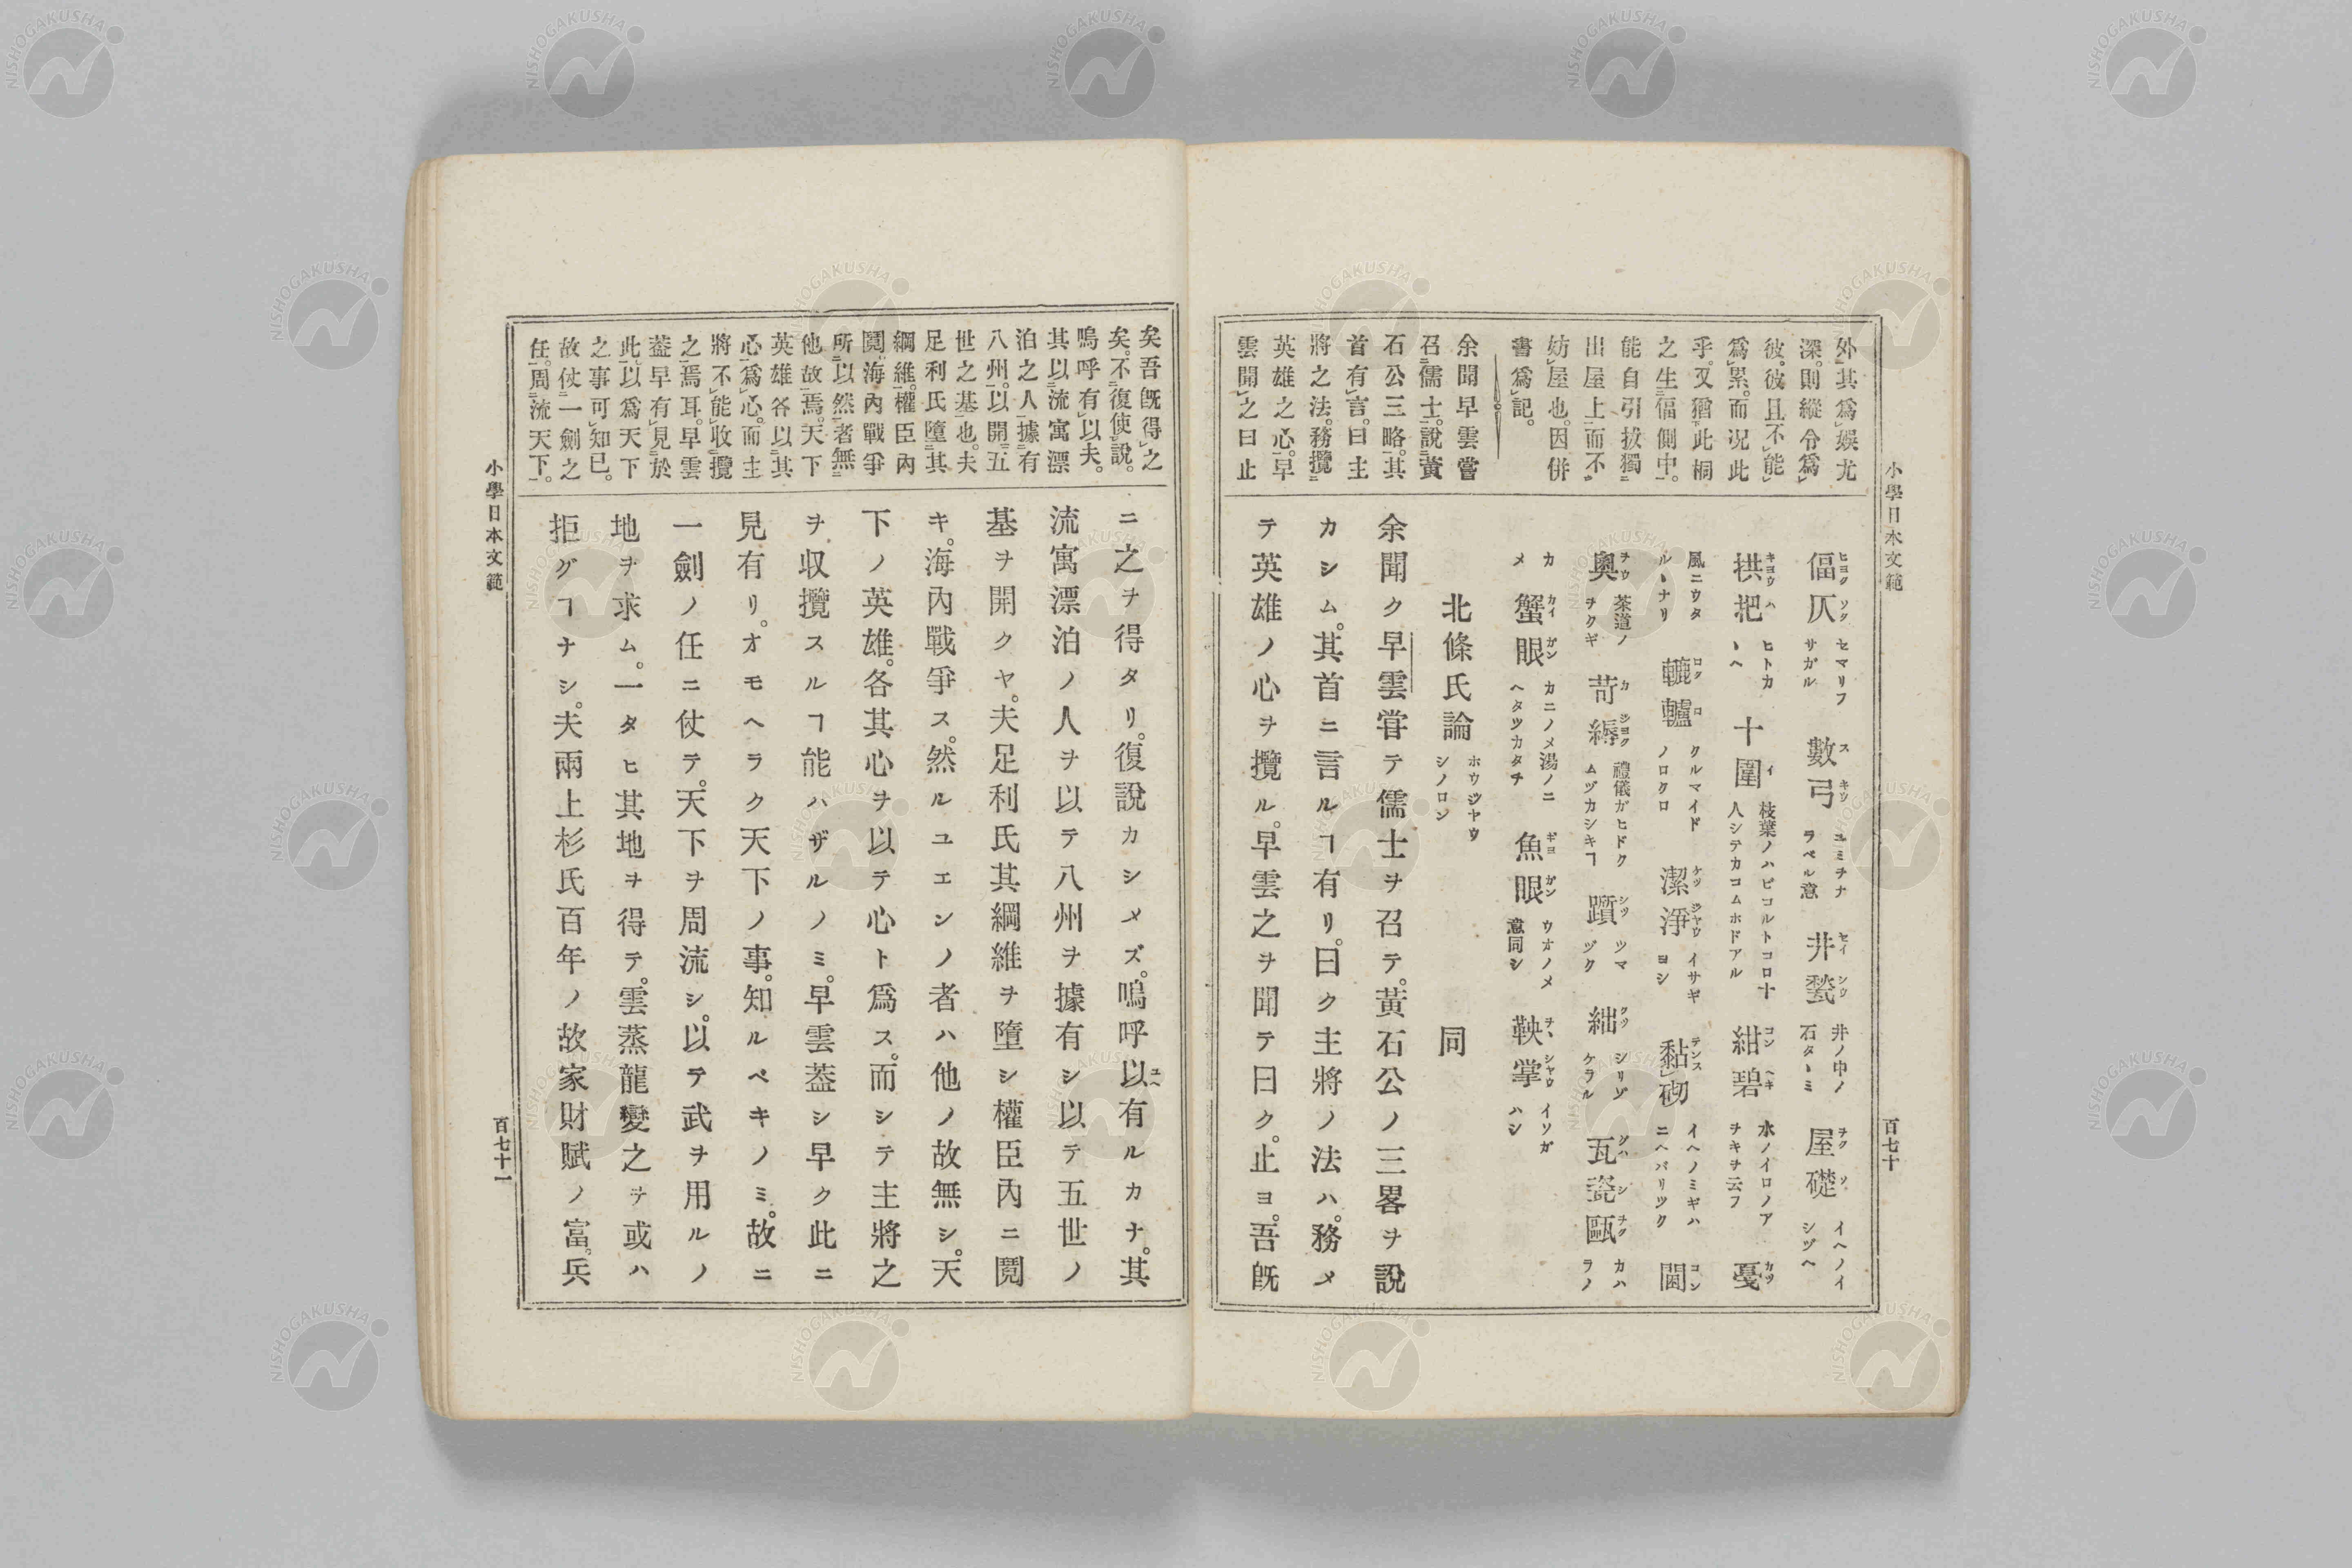 小學日本文範
百七十
外其爲娛尤
深。則縱令爲
彼。彼且不能
爲累。而况此
乎。又猶此桐
之生偪側中。
能自引拔獨
出屋上而不
妨屋也。因併
書爲記。
余聞早雲嘗
召儒士。說黃
石公三略。其
首有言。曰主
將之法。務攬
英雄之心。早
雲聞之曰止
偪仄 セマリフサガル 數弓 ユミチナラベル意 井甃 井ノ中ノ石タヽミ 屋礎 イヘノイシヅヘ
拱把 ヒトカヽヘ 十圍 枝葉ノハビコルトコロ十人シテカコムホドアル 紺碧 水ノイロノアヲキヲ云フ 戞
風ニウタルヽナリ 轆轤 クルマイドノロクロ 潔淨 イサギヨシ 黏砌 イヘノミギハニヘバリツク 閫
奧 茶道ノヲクギ 苛縟 禮儀ガヒドクムヅカシキヿ 躓 ツマヅク 絀 シリゾケラル 瓦瓷甌 カハラノ
カメ 蟹眼 カニノメ湯ノニヘタツカタチ 魚眼 ウオノメ意同シ 鞅掌 イソガハシ
北條氏論 ホウジヤウシノロン 同
余聞ク早雲甞テ儒士ヲ召テ。黃石公ノ三畧ヲ說
カシム。其首ニ言ルヿ有リ。曰ク主將ノ法ハ。務メ
テ英雄ノ心ヲ攬ル。早雲之ヲ聞テ曰ク。止ヨ。吾旣
矣吾旣得之
矣。不復使說。
嗚呼有以夫。
其以流寓漂
泊之人據有
八州。以開五
世之基也。夫
足利氏墮其
綱維。權臣內
鬩。海內戰爭
所以然者無
他故焉。天下
英雄各以其
心爲心。而主
將不能收攬
之焉耳。早雲
葢早有見於
此以爲天下
之事可知已。
故仗一劍之
任。周流天下。
ニ之ヲ得タリ。復說カシメズ。嗚呼以有ルカナ。其
流寓漂泊ノ人ヲ以テ八州ヲ據有シ以テ五世ノ
基ヲ開クヤ。夫足利氏其綱維ヲ墮シ權臣內ニ鬩
キ。海內戰爭ス。然ルユエンノ者ハ他ノ故無シ。天
下ノ英雄。各其心ヲ以テ心ト爲ス。而シテ主將之
ヲ收攬スルヿ能ハザルノミ。早雲葢シ早ク此ニ
見有リ。オモヘラク天下ノ事。知ルベキノミ。故ニ
一劍ノ任ニ仗テ。天下ヲ周流シ。以テ武ヲ用ルノ
地ヲ求ム。一タヒ其地ヲ得テ。雲蒸龍變之ヲ或ハ
拒グヿナシ。夫兩上杉氏百年ノ故家財賦ノ富。兵
小學日本文範
百七十一